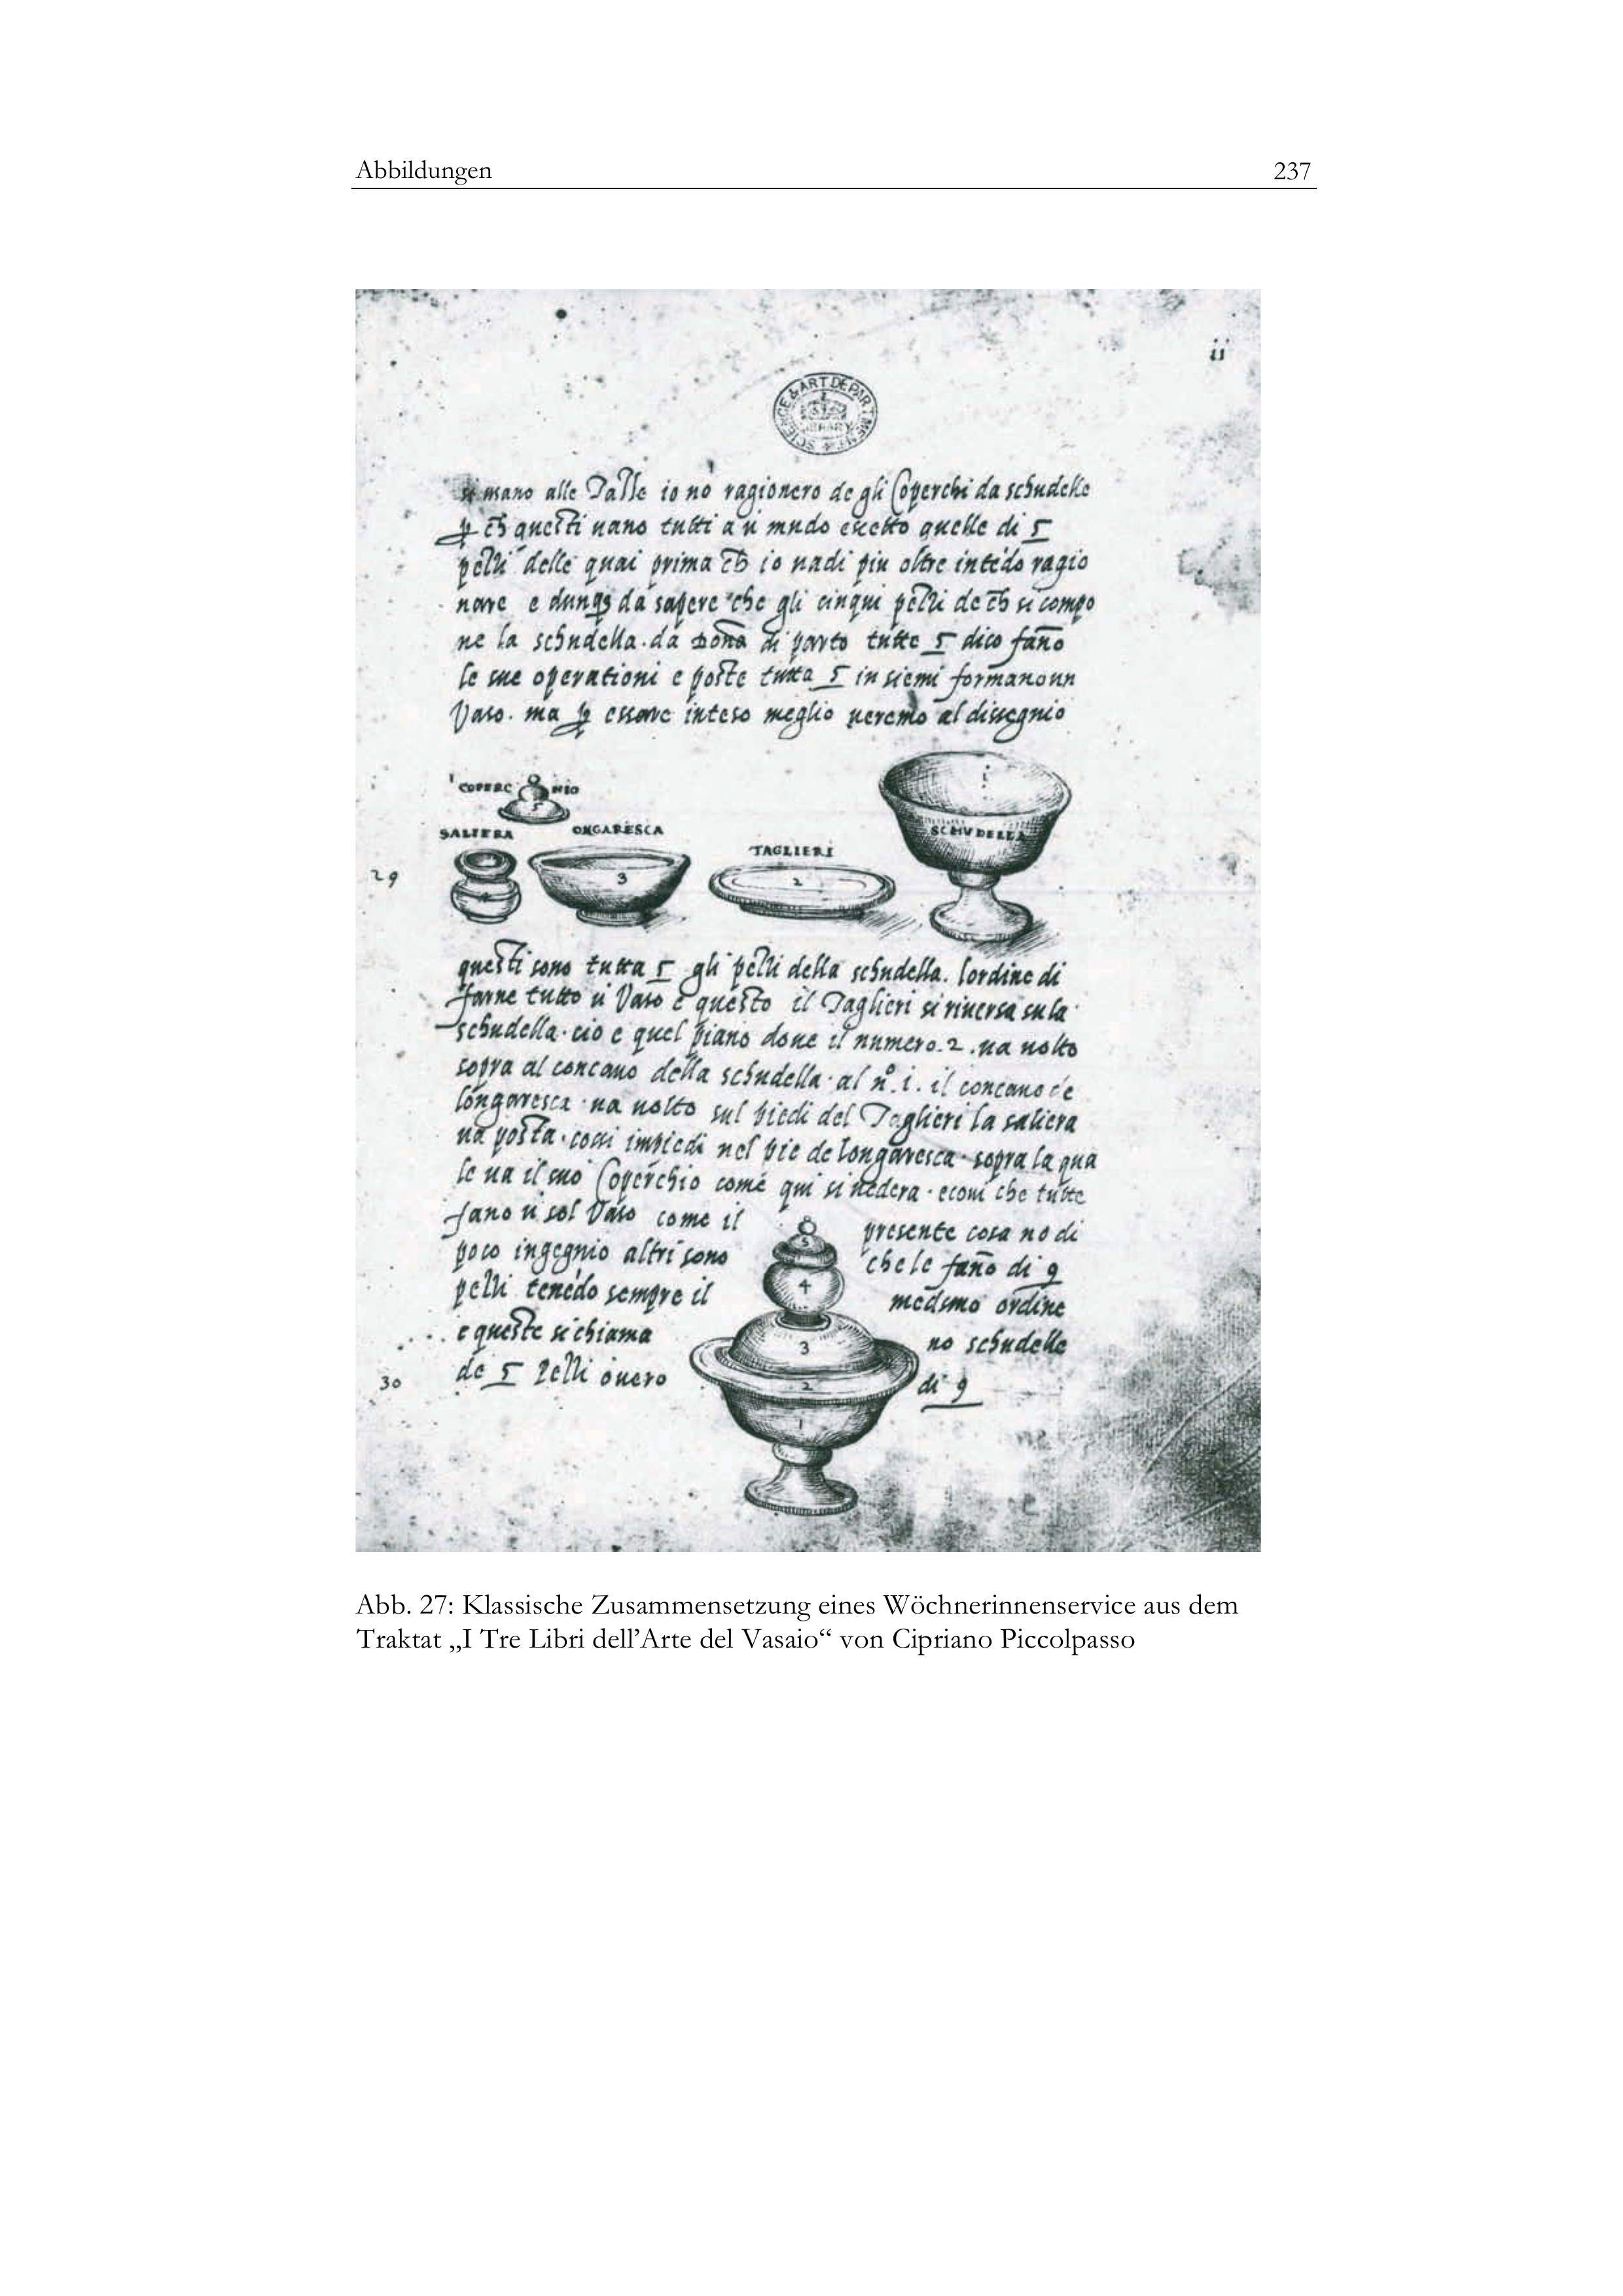 Abbildungen 237
ii
SCIENCE & ART DEPARTMENT
LIBRARY
mano alle Palle io nō ragionero de gli Coperchi da schudelle
questi uano tutti a ū mudo eccetto quelle di 5
pezzi delle quai prima io uadi piu oltre intēdo ragio
nare e dunq3 da sapere che gli cinqui pezzi de si compo
ne la schudella · da Dona di parto tutte 5 dico fāno
le sue operationi e poste tutta 5 in siemi formano un
Vaso · ma essere inteso meglio ueremo al dissegnio
COPERC HIO
5
SALIERA ONGARESCA
TAGLIERI
SCHVDELLA
29
3
2
1
questi sono tutta 5 gli pezzi della schudella. lordine di
farne tutto ū Vaso e questo il Taglieri si riuersa su la
schudella · cio e quel piano doue il numero · 2 · ua uolto
sopra al concauo della schudella · al nº · i · il concauo de
longaresca · ua uolto sul piedi del Taglieri la saliera
ua posta · cosi impiedi nel pie de longaresca · sopra la qua
le ua il suo Coperchio come qui si uedera · ecoui che tutte
fano ū sol Vaso come il presente cosa no di
poco ingegnio altri sono che le fāno di 9
pezzi tenēdo sempre il medsmo ordine
e queste si chiama no schudelle
de 5 Pezzi ouero di 9
30
5
4
3
2
1
Abb. 27: Klassische Zusammensetzung eines Wöchnerinnenservice aus dem
Traktat „I Tre Libri dell’Arte del Vasaio“ von Cipriano Piccolpasso